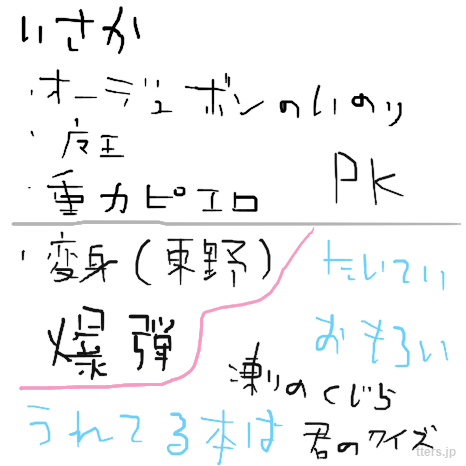 いさか
・オーデュボンのいのり
・魔王
・重力ピエロ
PK
・変身(東野)
爆弾
うれてる本は
たいてい
おもろい
凍りのくじら
君のクイズ
tters.jp